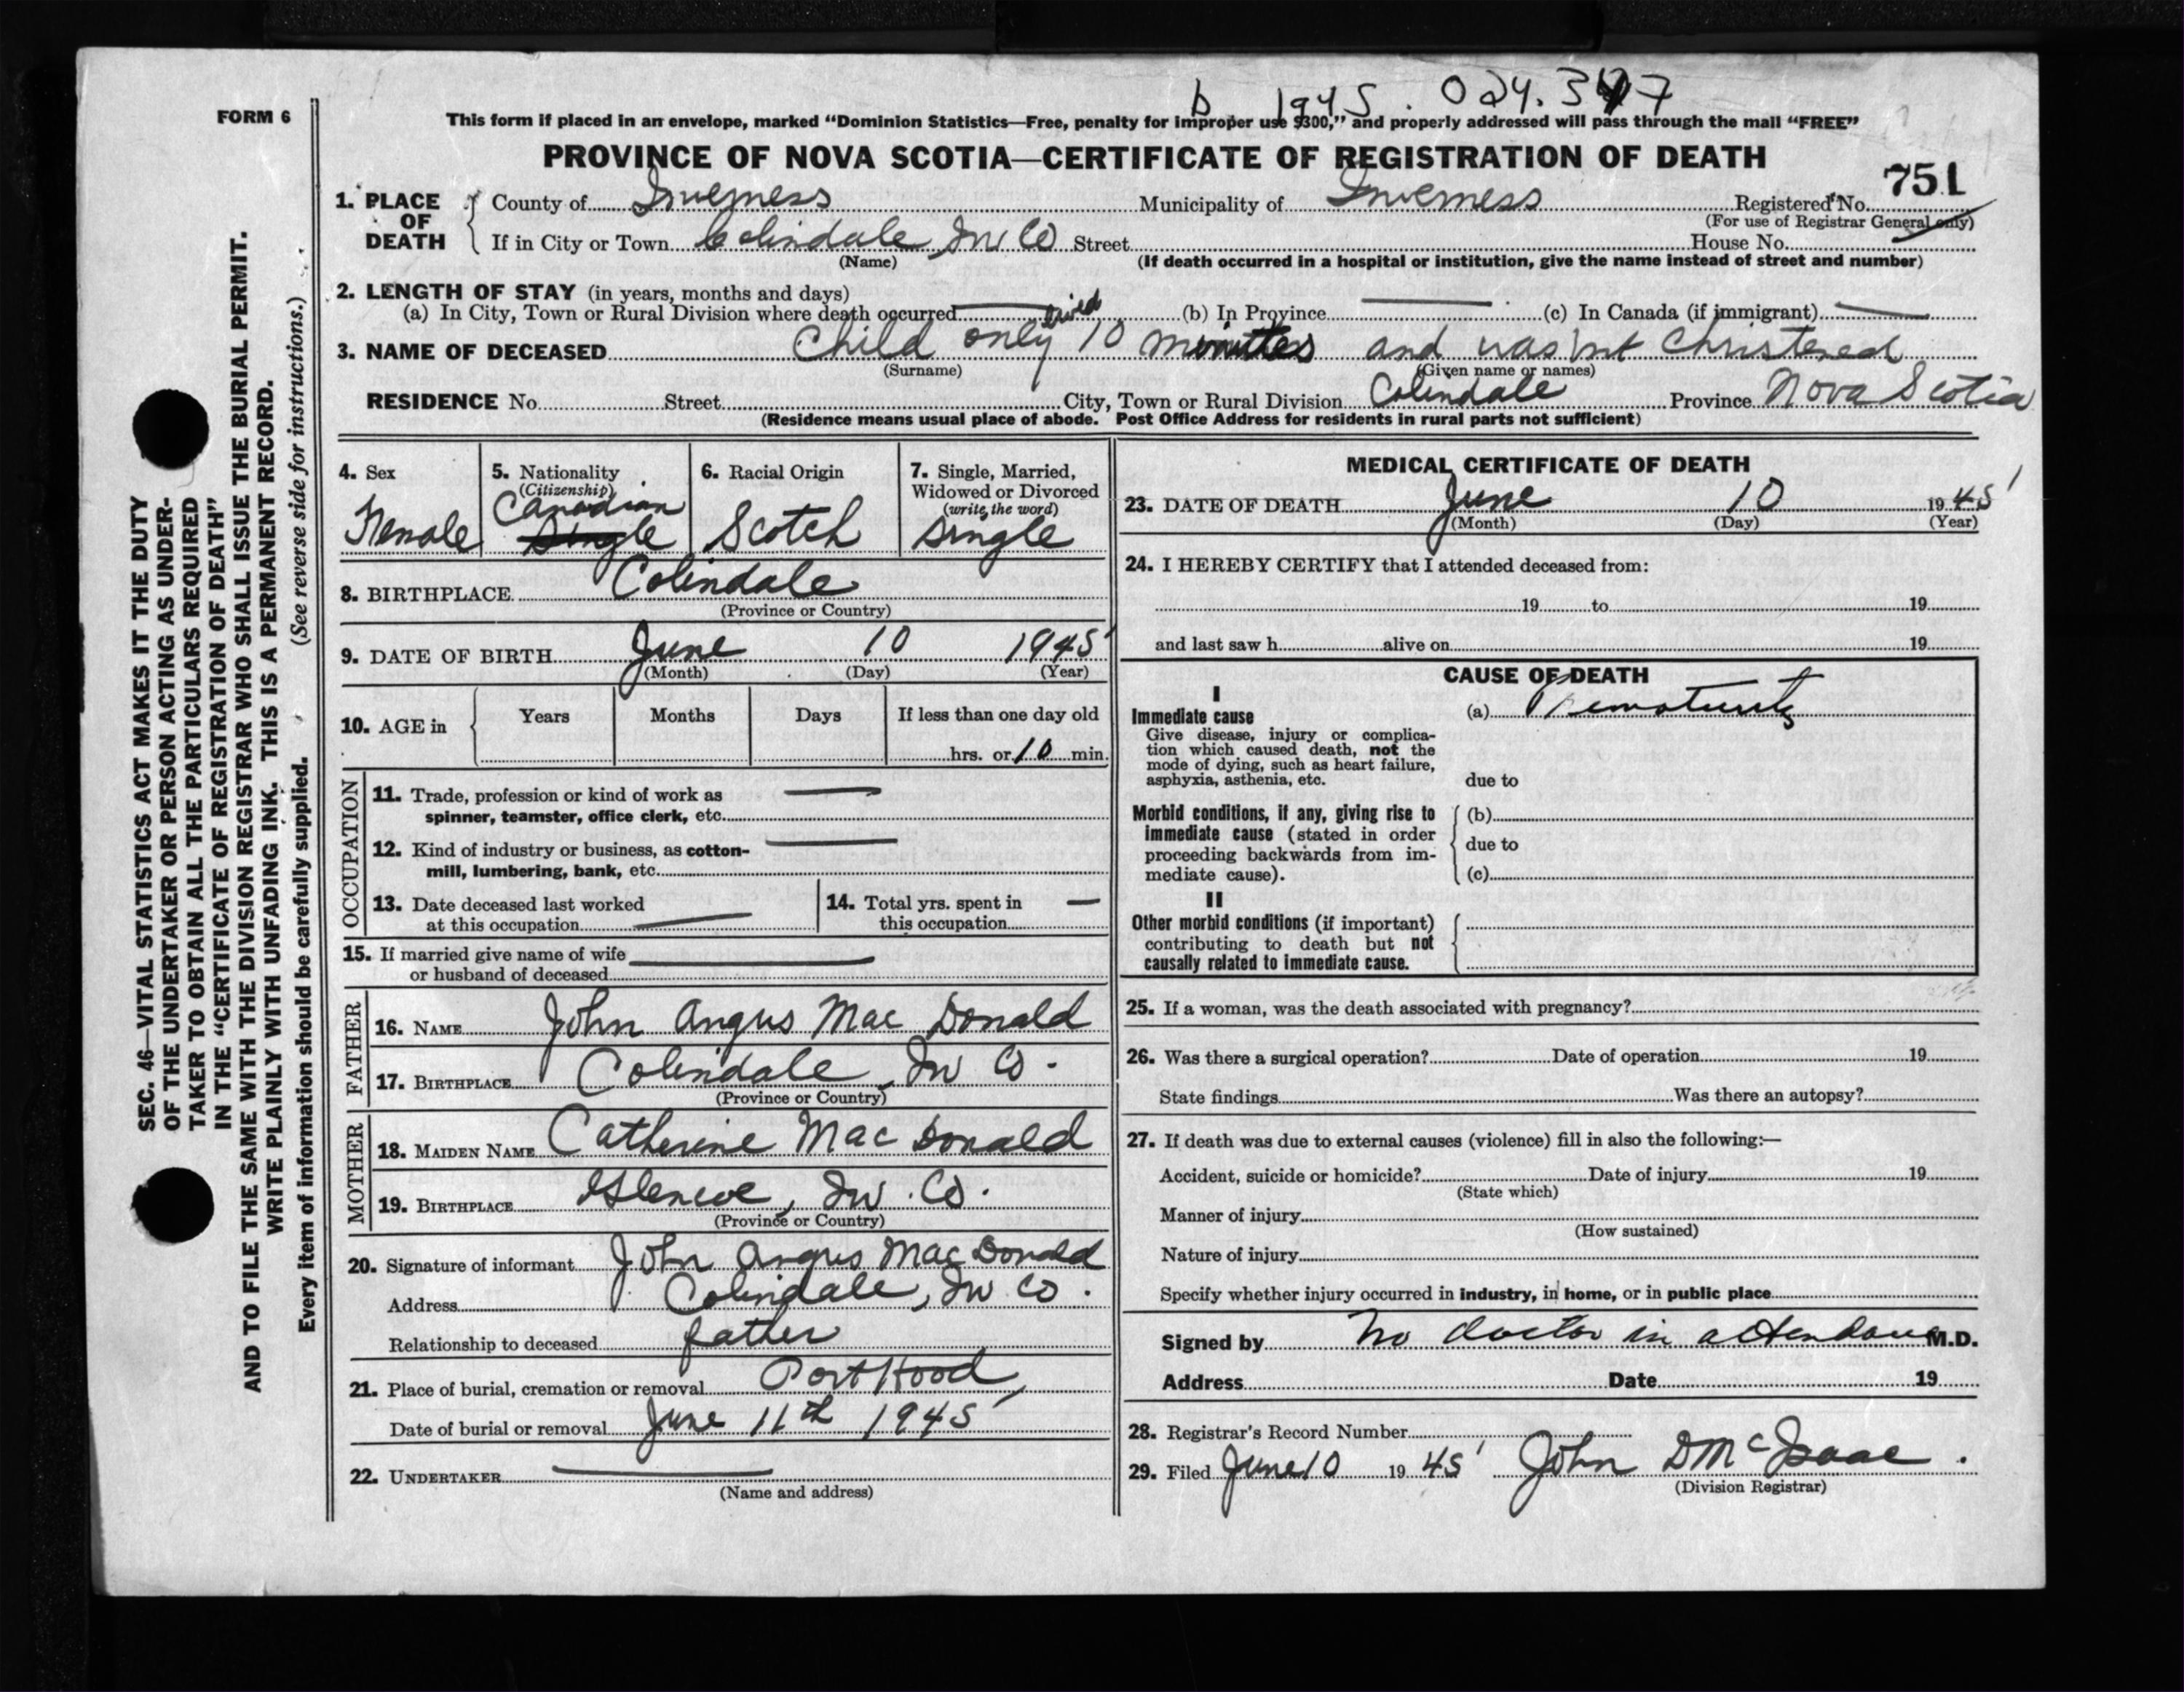 b 1945. 024.347
FORM 6
This form if placed in an envelope, marked “Dominion Statistics—Free, penalty for improper use $300,” and properly addressed will pass through the mail “FREE”
PROVINCE OF NOVA SCOTIA—CERTIFICATE OF REGISTRATION OF DEATH
751
1. PLACE OF DEATH
County of Inverness Municipality of Inverness Registered No.
(For use of Registrar General only)
If in City or Town Colindale Inv Co Street House No.
(Name) (If death occurred in a hospital or institution, give the name instead of street and number)
2. LENGTH OF STAY (in years, months and days)
(a) In City, Town or Rural Division where death occurred — (b) In Province — (c) In Canada (if immigrant) —
3. NAME OF DECEASED Child only lived 10 minutes and was not christened
(Surname) (Given name or names)
RESIDENCE No. Street City, Town or Rural Division Colindale Province Nova Scotia
(Residence means usual place of abode. Post Office Address for residents in rural parts not sufficient)
4. Sex
Female
5. Nationality
(Citizenship)
Canadian
Single
6. Racial Origin
Scotch
7. Single, Married,
Widowed or Divorced
(write the word)
Single
8. BIRTHPLACE Colindale
(Province or Country)
9. DATE OF BIRTH June 10 1945
(Month) (Day) (Year)
10. AGE in Years Months Days If less than one day old
hrs. or 10 min.
OCCUPATION
11. Trade, profession or kind of work as —
spinner, teamster, office clerk, etc.
12. Kind of industry or business, as cotton- —
mill, lumbering, bank, etc.
13. Date deceased last worked
at this occupation —
14. Total yrs. spent in —
this occupation
15. If married give name of wife —
or husband of deceased
FATHER
16. NAME John Angus Mac Donald
17. BIRTHPLACE Colindale, Inv Co.
(Province or Country)
MOTHER
18. MAIDEN NAME Catherine Mac Donald
19. BIRTHPLACE Glencoe, Inv. Co.
(Province or Country)
20. Signature of informant John Angus Mac Donald
Address Colindale, Inv Co.
Relationship to deceased father
21. Place of burial, cremation or removal Port Hood,
Date of burial or removal June 11th 1945
22. UNDERTAKER —
(Name and address)
MEDICAL CERTIFICATE OF DEATH
23. DATE OF DEATH June 10 1945
(Month) (Day) (Year)
24. I HEREBY CERTIFY that I attended deceased from:
19 to 19
and last saw h alive on 19
CAUSE OF DEATH
I
Immediate cause
Give disease, injury or complica-
tion which caused death, not the
mode of dying, such as heart failure,
asphyxia, asthenia, etc.
(a) Prematurity
due to
Morbid conditions, if any, giving rise to
immediate cause (stated in order
proceeding backwards from im-
mediate cause).
(b)
due to
(c)
II
Other morbid conditions (if important)
contributing to death but not
causally related to immediate cause.
25. If a woman, was the death associated with pregnancy?
26. Was there a surgical operation? Date of operation 19
State findings Was there an autopsy?
27. If death was due to external causes (violence) fill in also the following:—
Accident, suicide or homicide? Date of injury 19
(State which)
Manner of injury
(How sustained)
Nature of injury
Specify whether injury occurred in industry, in home, or in public place
Signed by No doctor in attendance M.D.
Address Date 19
28. Registrar's Record Number
29. Filed June 10 19 45 John D McIsaac.
(Division Registrar)
SEC. 46—VITAL STATISTICS ACT MAKES IT THE DUTY
OF THE UNDERTAKER OR PERSON ACTING AS UNDER-
TAKER TO OBTAIN ALL THE PARTICULARS REQUIRED
IN THE “CERTIFICATE OF REGISTRATION OF DEATH”
AND TO FILE THE SAME WITH THE DIVISION REGISTRAR WHO SHALL ISSUE THE BURIAL PERMIT.
WRITE PLAINLY WITH UNFADING INK. THIS IS A PERMANENT RECORD.
Every item of information should be carefully supplied. (See reverse side for instructions.)